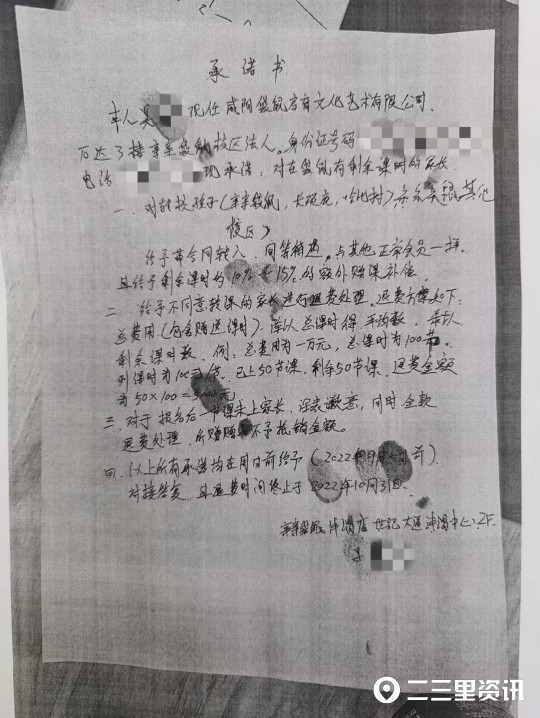 承诺书
本人吴 现任咸阳袋鼠启育文化艺术有限公司.
万达3楼亲亲袋鼠校区法人。身份证号码
电话 现承诺，对在袋鼠有剩余课时的家长.
一、对转校孩子(亲亲袋鼠, 其他
校区)
给予带合同转入，同等待遇，与其他正常会员一样.
且给予剩余课时的10%至15%的额外赠课补偿.
二、给予不同意转课的家长进行退费处理.退费方案如下:
总费用(包含赠送课时)除以总课时得平均数，乘以
剩余课时数. 例:总费用为一万元，总课时为100节.
则课时为100元/节. 已上50节课.剩余50节课.退费金额
为50×100=5000元
三、对于报名后一节课未上家长，深表歉意，同时全款
退费处理，所赠 不予抵销金额。
四、以上所有承诺均在周日前给予(2022年9月 前)
对接答复，且退费时间终止于2022年10月31日.
亲亲袋鼠沣渭店 世纪大道沣渭中心2F.
二三里资讯